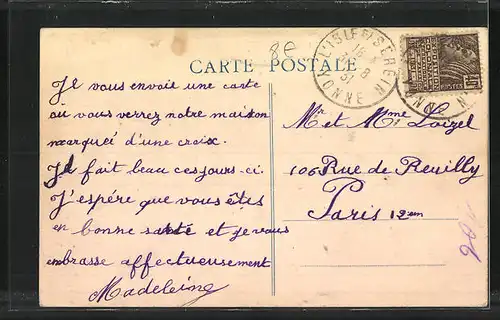 8E
L'ISLE-S-SEREIN
16
8
31
YONNE
CARTE POSTALE
POSTES
Je vous envoie une carte
où vous verrez notre maison
marqueé d'une croix.
Il fait beau ces jours-ci.
J'espére que vous êtes
en bonne santé et je vous
embrasse affectueusement
Madeleine
Mr et Mme Loizel
106 Rue de Reuilly
Paris 12em